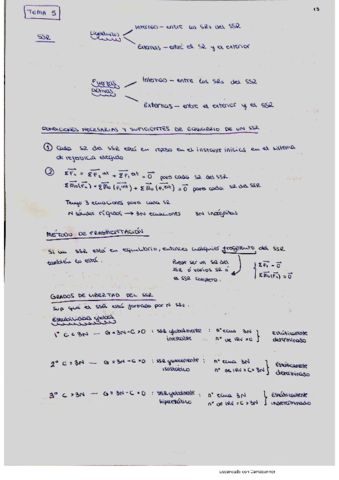 TEMA 5
SSR
Ligaduras
Internas - entre los SRs del SSR
Externas - entre el SR y el exterior
Fuerzas activas
Internas - entre los SRs del SSR
Externas - entre el exterior y el SSR
CONDICIONES NECESARIAS Y SUFICIENTES DE EQUILIBRIO DE UN SSR
① Cada SR del SSR está en reposo en el instante inicial en el sistema
de referencia elegido
② para cada SR del SSR
para cada SR del SSR
Tengo 3 ecuaciones para cada SR
N sólidos rígidos → 3N ecuaciones 3N incógnitas
METODO DE FRAGMENTACIÓN
Si un SSR está en equilibrio, entonces cualquier fragmento del SSR
también lo está.
Puede ser un SR del
SSR o varios SR o
el SSR completo.
GRADOS DE LIBERTAD DEL SSR
Sup que el SSR está formado por N SRs.
Estabilidad global
1º C < 3N — G = 3N - C > 0 : SSR globalmente : nº ecua 3N
nº de INV = C
Estáticamente determinado
2º C = 3N — G = 3N - C = 0 : SSR globalmente isostático : nº ecua 3N
nº de INV = C = 3N
Estáticamente determinado
3º C > 3N — G = 3N - C < 0 : SSR globalmente hiperestático : nº ecua 3N
nº de INV = C > 3N
Estáticamente indeterminado
Escaneado con CamScanner